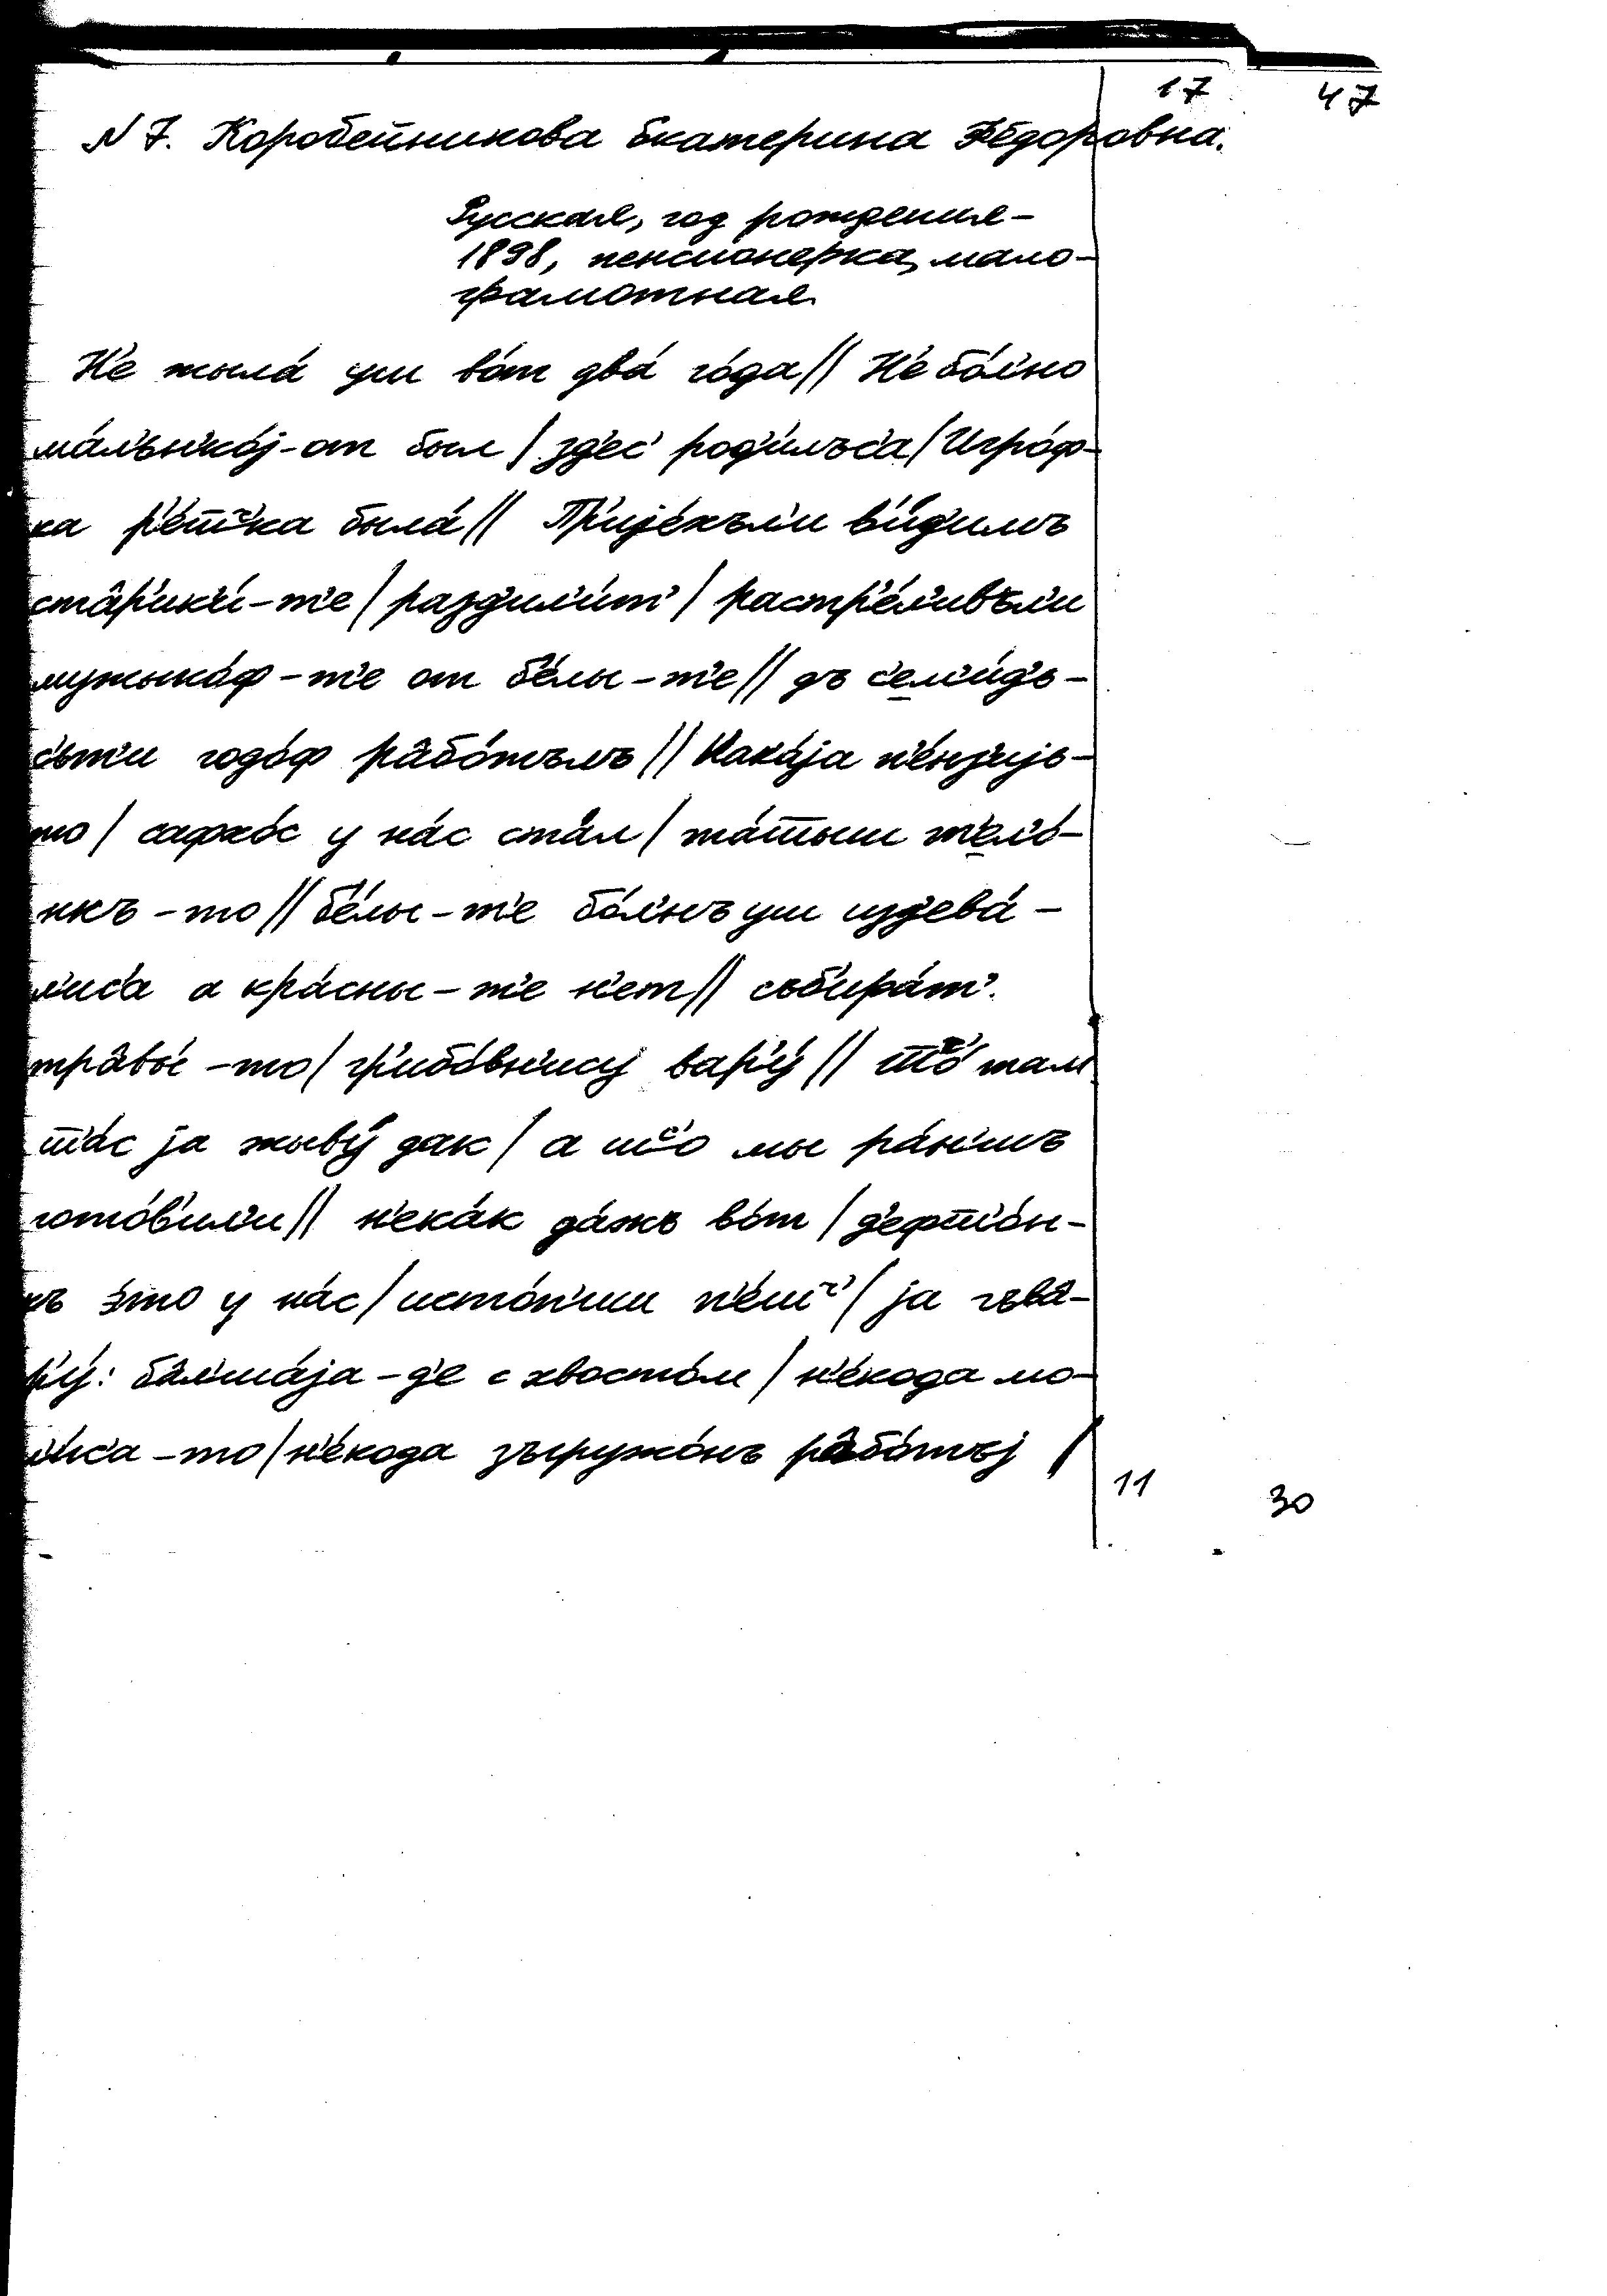 17 47
N 7. Коробейникова Екатерина Фёдоровна.
Русская, год рождения –
1898, пенсионерка, мало-
грамотная.
Н'е жыла́ уш во́т два́ го́да // Н'е бо́л'но
ма́л'ьн'ко́j-от был / зд'ес' род'и́лъс'а / Игро́ф-
ка р'е́ш̅ч'ка была́ // Пр'иjе́хъл'и в'и́д'имъ
ста̂р'ик'и́-т'е / разд'ил'и́т' / растр'е́л'ивъл'и
мужыко́ф-т'е от б'е́лы-т'е // дъ с'ем'и́д'ь-
с'ьт'и годо́ф ра̂бо́тълъ // Кака́jа п'е́нз'иjь-
то / сафхо́с у нас ста́л / та́тыш т'ело́-
нкъ-то // б'е́лы-т'е бо́л'нъ уш изд'ева́-
л'ис'а а кра́сны-т'е н'ет // съб'ира́т'
тра̂вы́-то / гр'ибо́вн'ицу вар'у́ // што́ там
т'а́с jа жыву́ дак / а што мы ра́н'шъ
гото́в'ил'и // н'ека́к да́жъ во́т / д'ефт'о́н-
къ э́то у на́с / исто́п'иш п'еш' / jа гъва̂-
р'у́: ба̂л'ша́jа-д'е с хвосто́м / н'е́кода мо-
л'и́с'а-то / н'е́кода зъгружо́нъ ра̂бо́тъj /
11 30